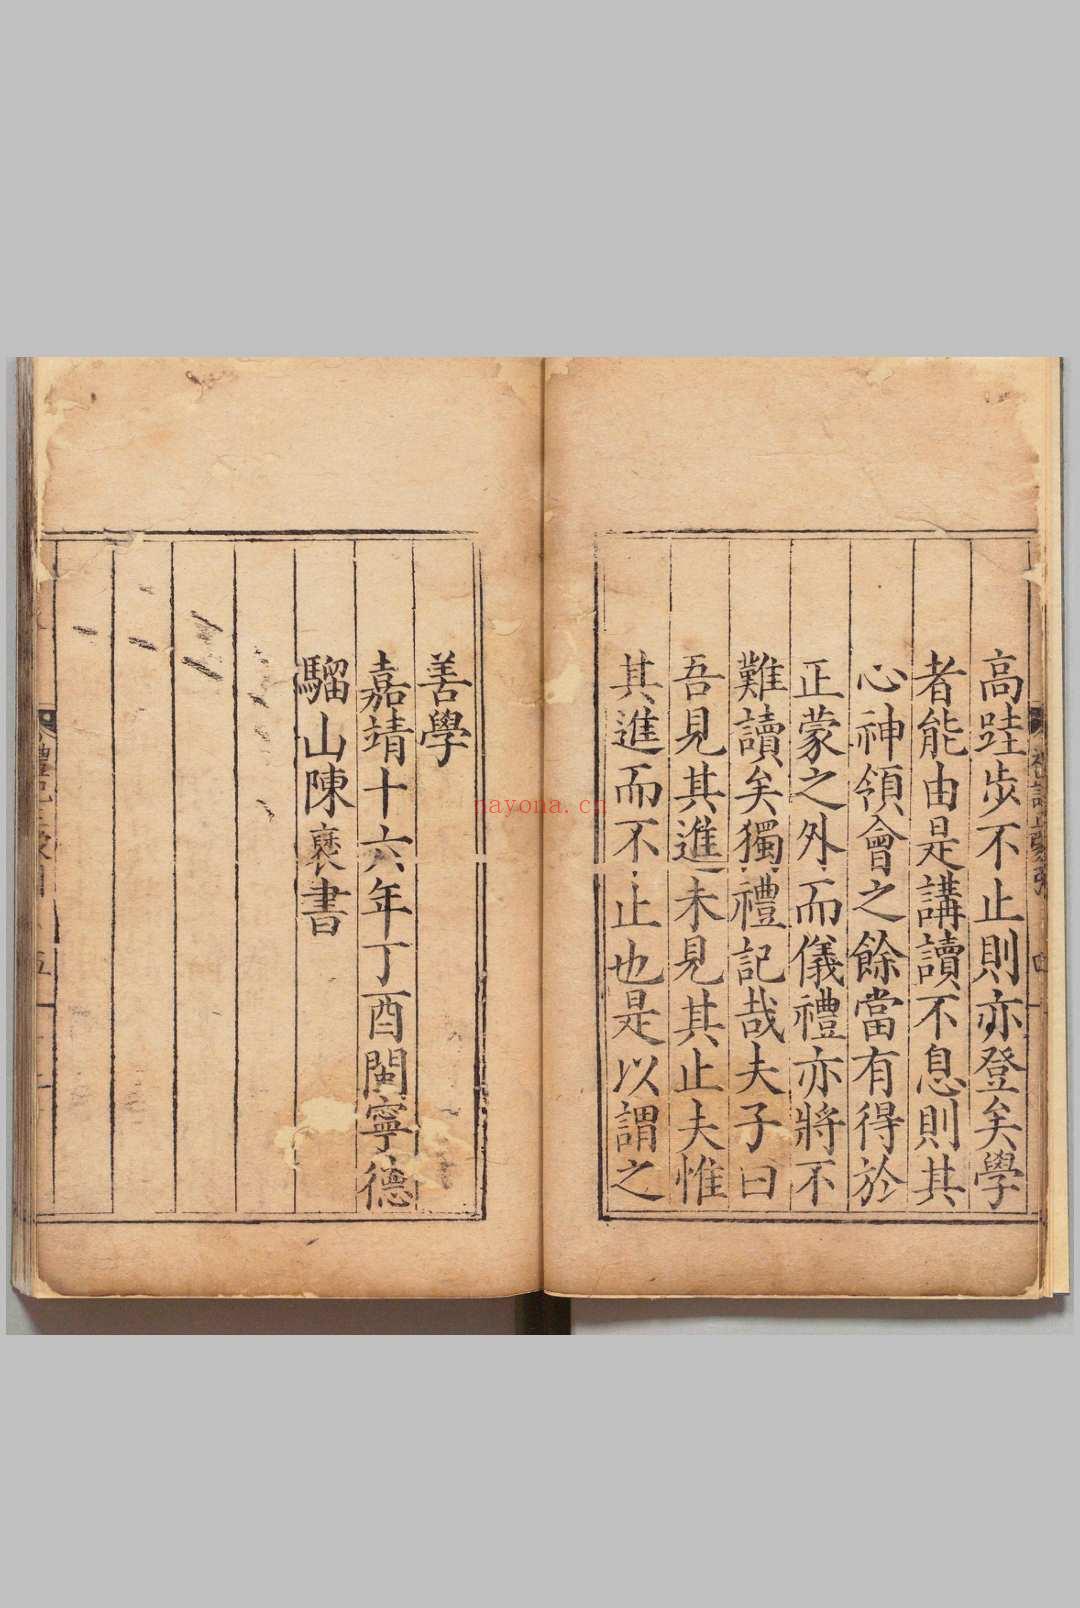 高跬步不止則亦登矣學
者能由是講讀不息則其
心神領會之餘當有得於
正蒙之外而儀禮亦將不
難讀矣獨禮記哉夫子曰
吾見其進未見其止夫惟
其進而不止也是以謂之
善學
嘉靖十六年丁酉閩寧德
騮山陳褎書
nayona.cn